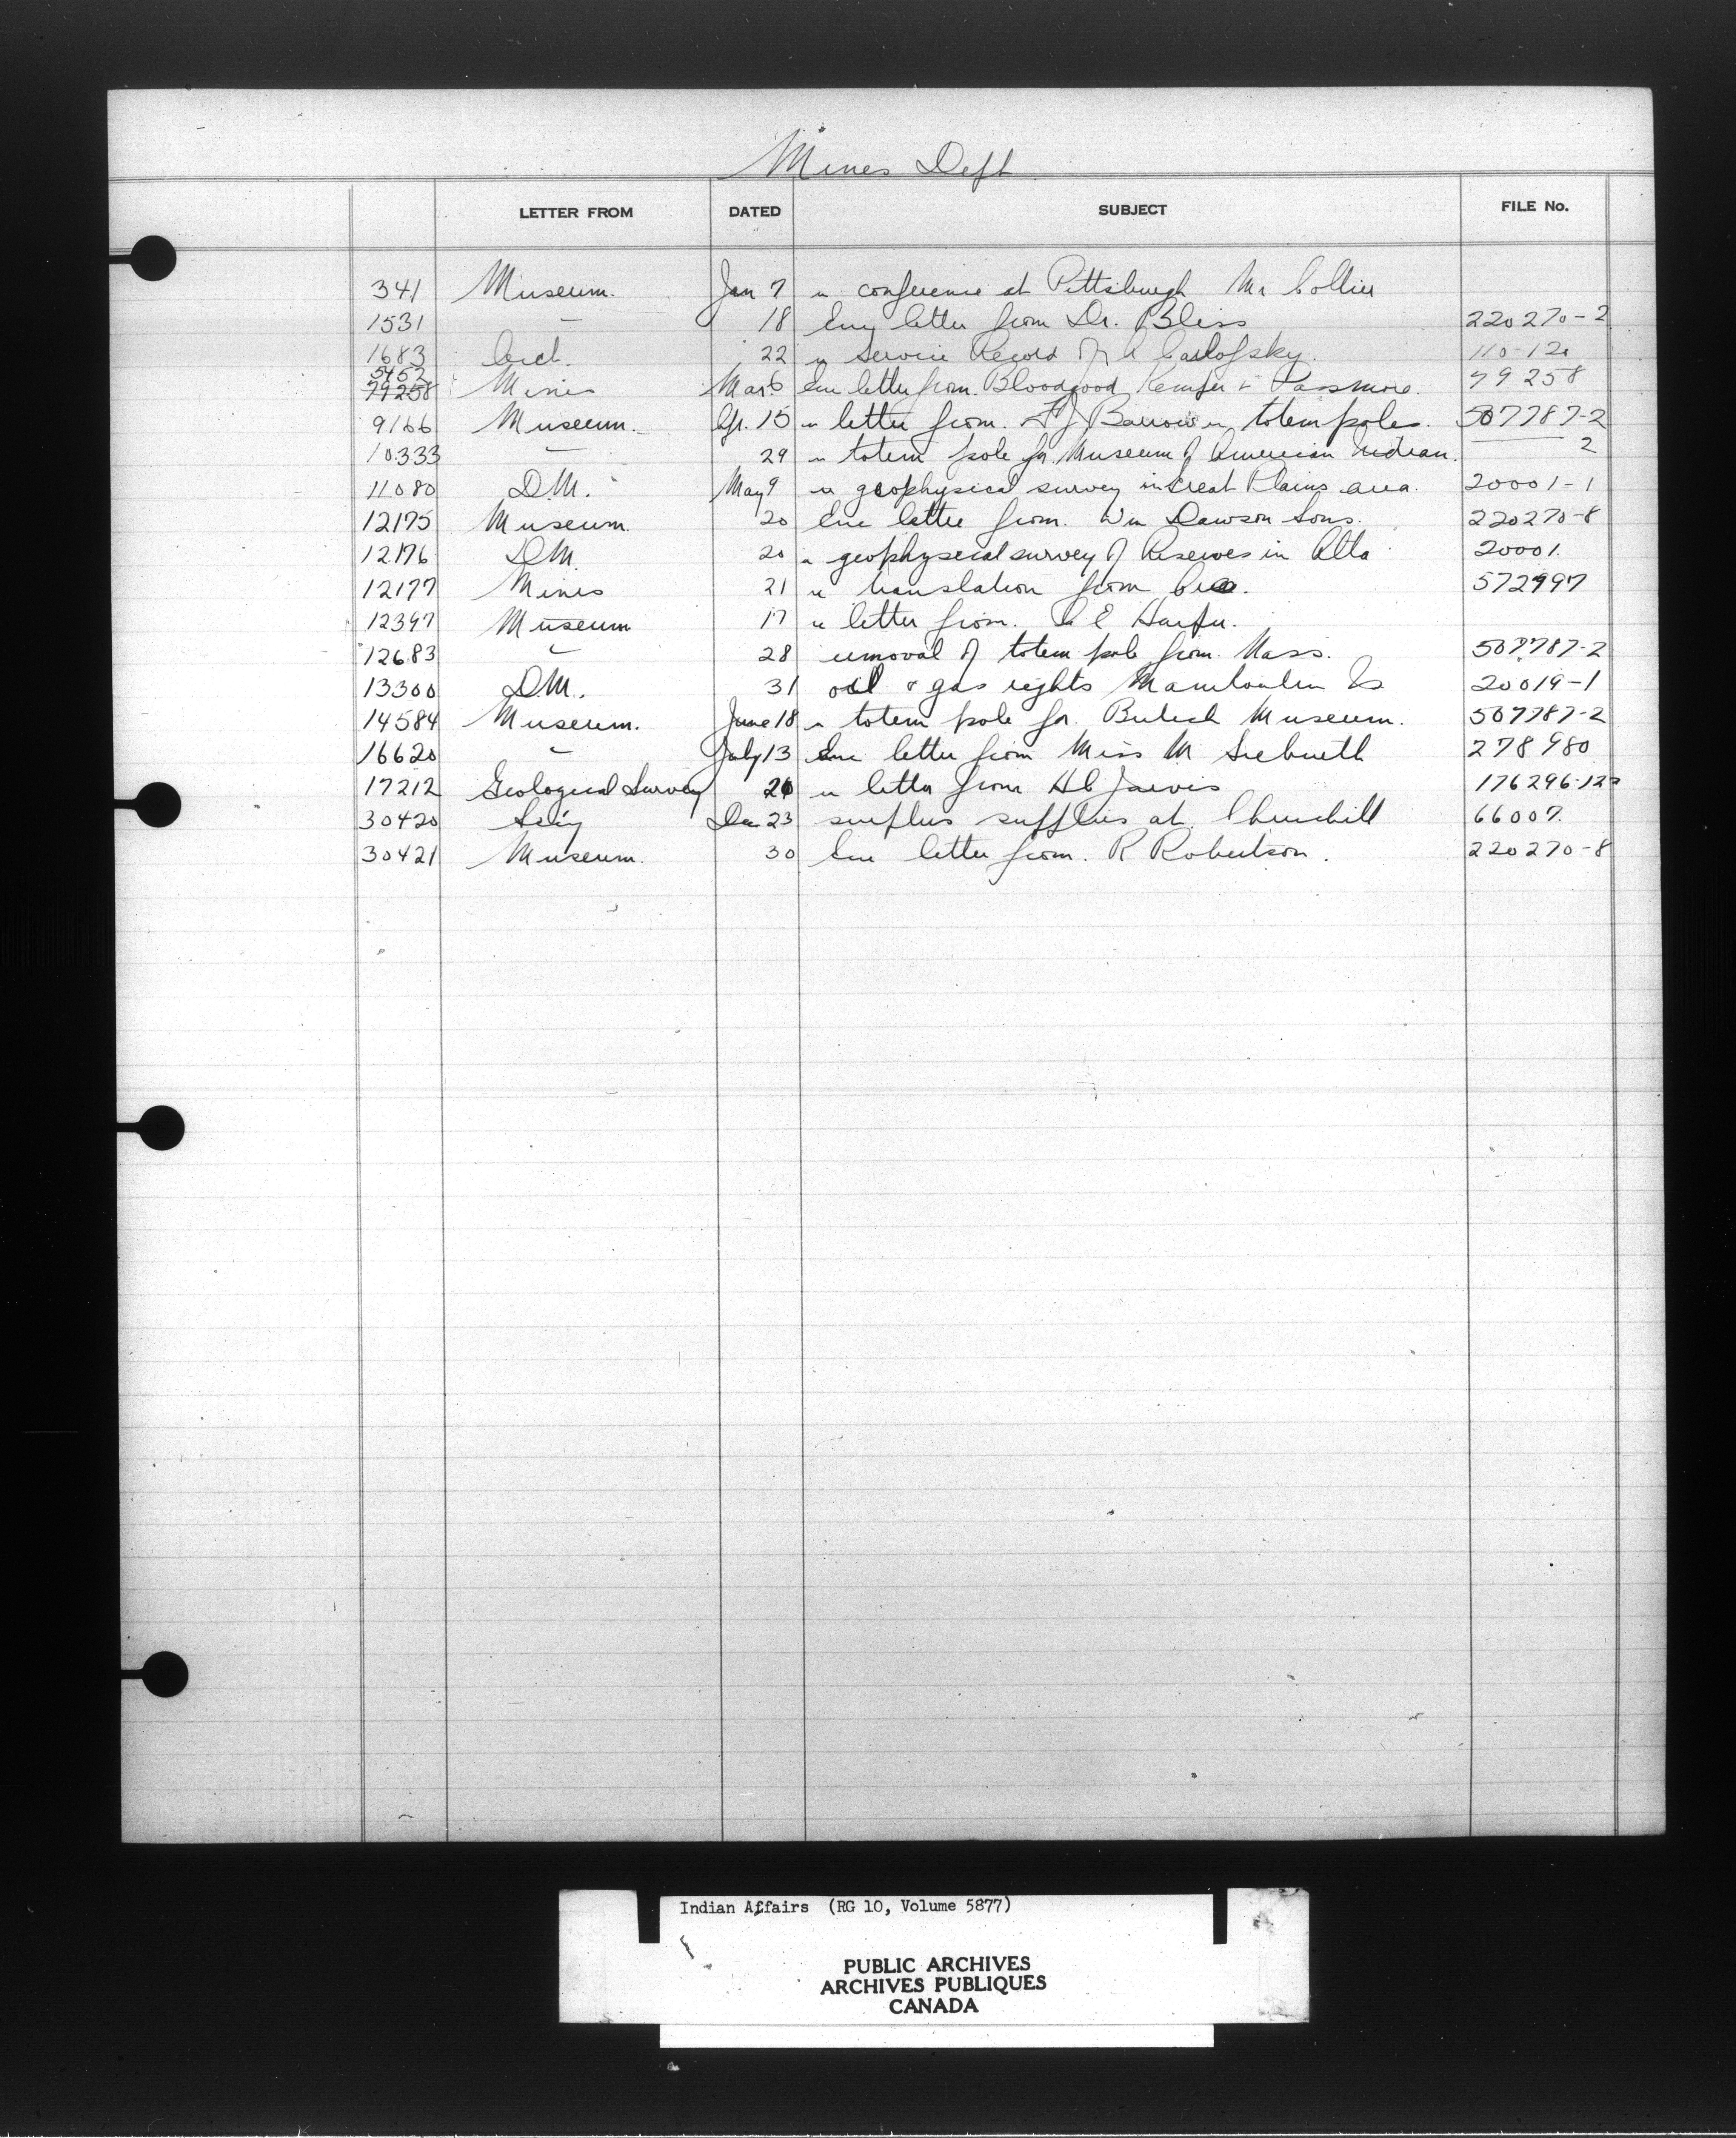 Mines Dept
LETTER FROM DATED SUBJECT FILE No.
341 Museum. Jan 7 re conference at Pittsburgh Mr Collier
1531 " 18 Enc letter from Dr. Bliss 220270-2
1683 22 re Service Record of 110-12
5452
79258 Mines Mar 6 Enc letter from Bloodgood Kemfer & Passmore. 79258
9166 Museum. Ap. 15 re letter from. F J Barrow re totem poles. 507787-2
10333 " 29 re totem pole for Museum of American Indian. 2
11080 D.M. May 9 re geophysical survey in Great Plains area. 20001-1
12175 Museum. 20 Enc letter from. Wm Dawson Sons. 220270-8
12176 D.M. 20 re geophysical survey of Reserves in Alta 20001.
12177 Mines 21 re translation from Cree. 572997
12397 Museum 17 re letter from. C E Harper.
12683 " 28 removal of totem pole from Nass. 507787-2
13300 D.M. 31 oil & gas rights Manitoulin Is 20019-1
14584 Museum. June 18 re totem pole for British Museum. 507787-2
16620 " July 13 Enc letter from Miss M 278980
17212 Geological Survey 26 re letter from H C Jarvis 176296-12
30420 Dec 23 surplus supplies at Churchill 66007.
30421 Museum. 30 Enc letter from. R Robertson. 220270-8
Indian Affairs (RG 10, Volume 5877)
PUBLIC ARCHIVES
ARCHIVES PUBLIQUES
CANADA